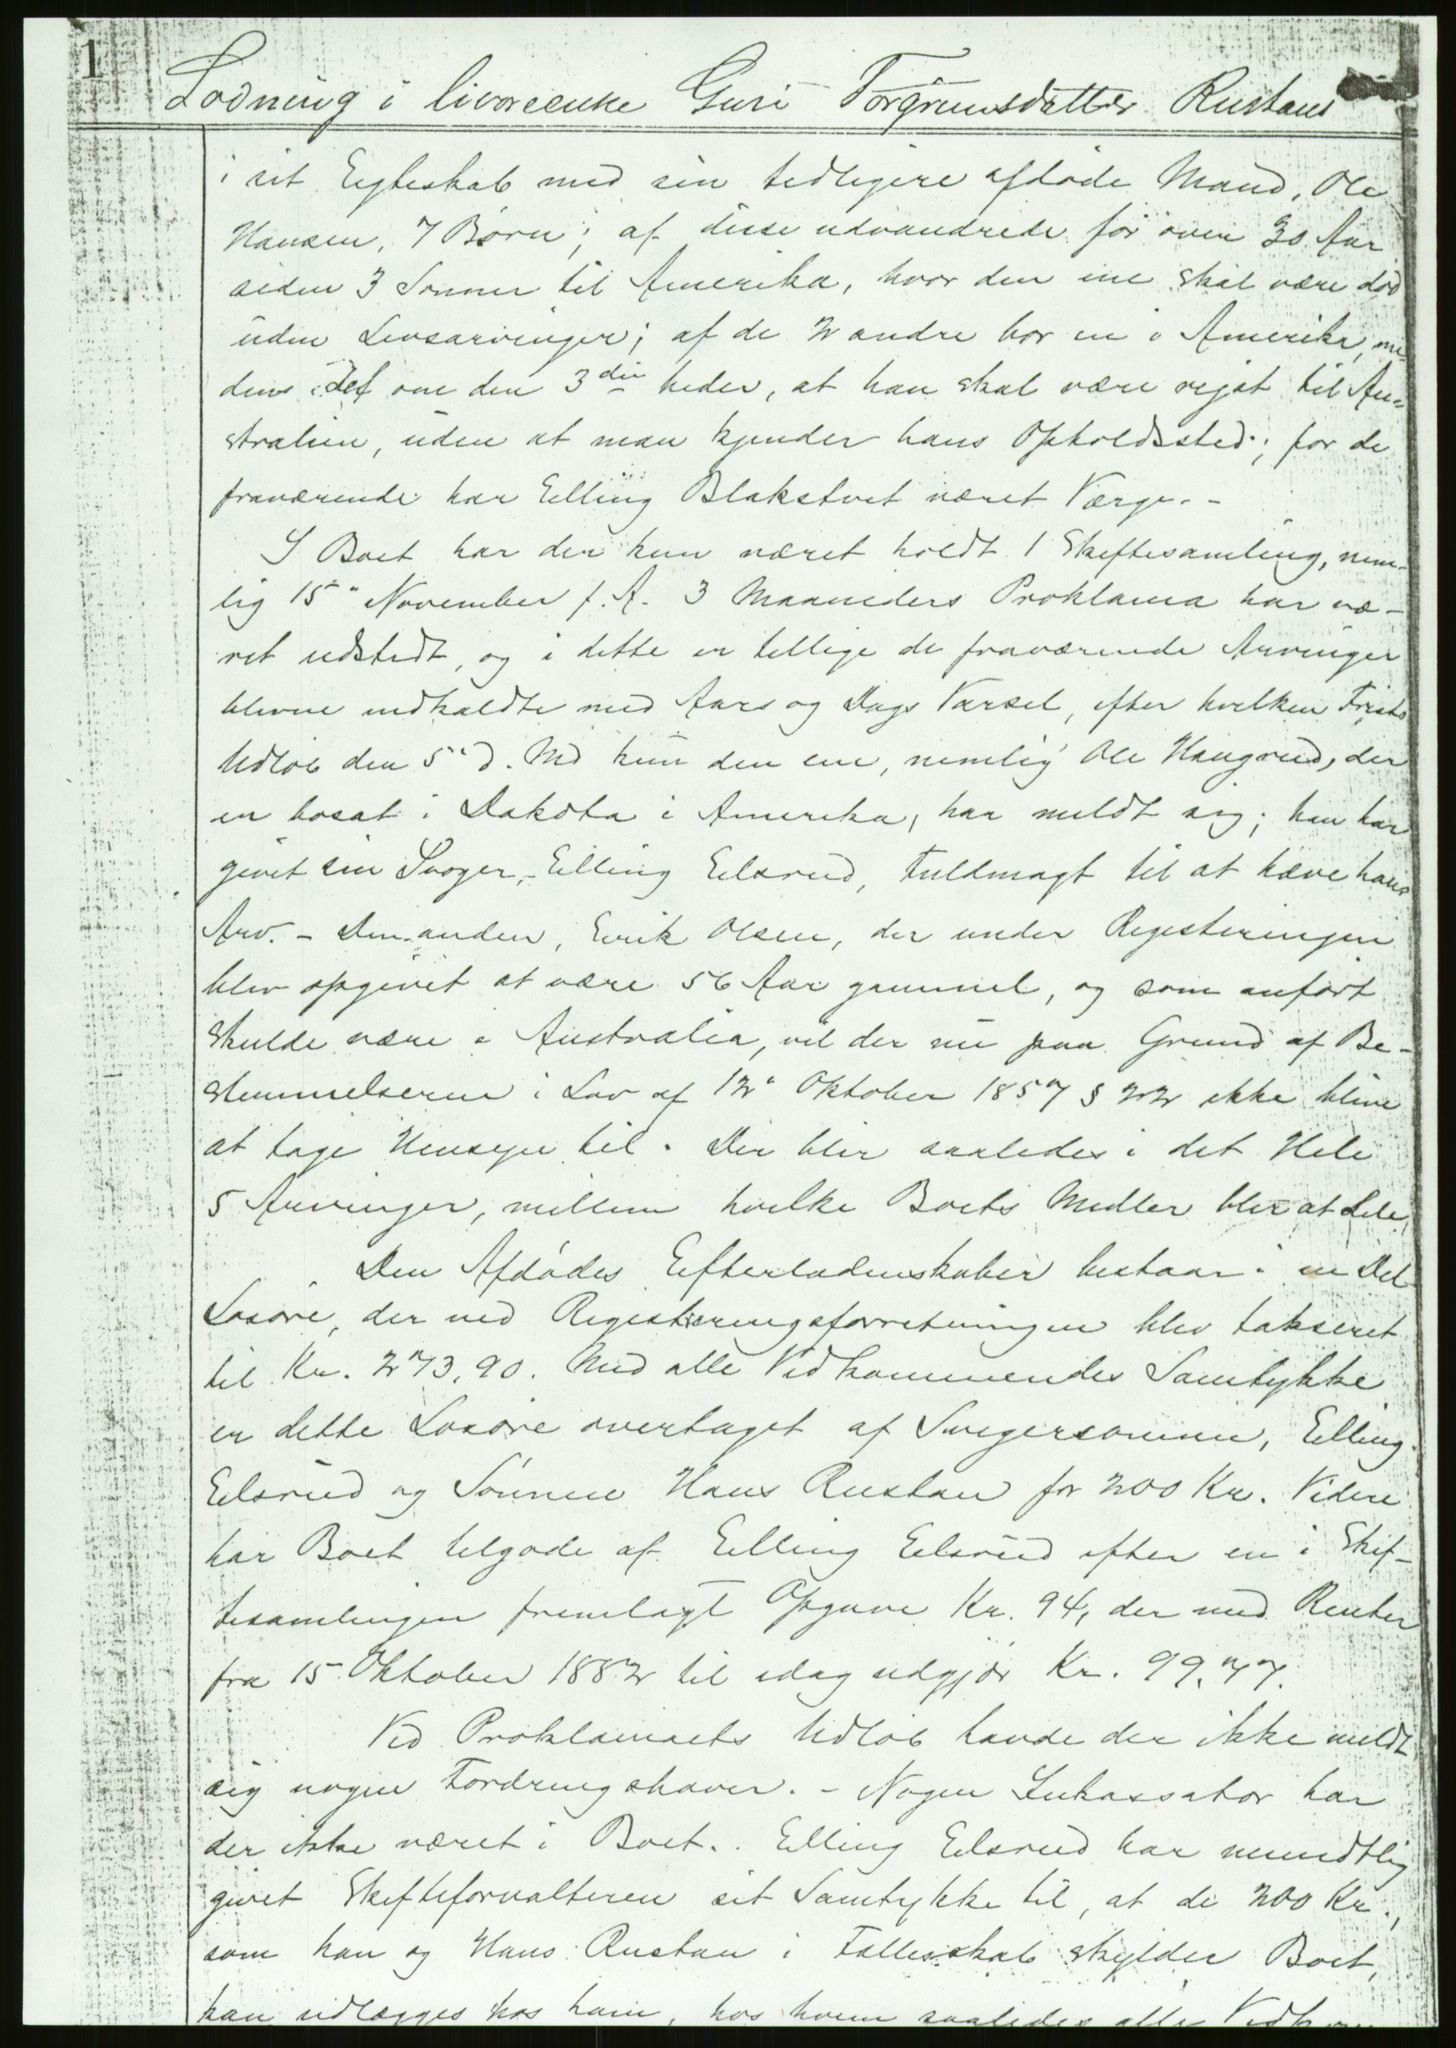 1
Lodning i livøreenke Guri Torgrimsdatter Rustans
i sit Egteskab med sin tidligere afdøde Mand, Ole
Hansen, 7 Børn; af disse udvandrede for over 30 Aar
siden 3 Sønner til Amerika, hvor den ene skal være død
uden Livsarvinger; af de 2 andre bor en i Amerika, me-
dens det om den 3die heder, at han skal være rejst til Au-
stralien, uden at man kjender hans Opholdssted; for de
fraværende har Elling Blakstvet været Værge. -
I Boet har der kun været holdt 1 Skiftesamling, nem-
lig 15de November f. A. 3 Maaneders Proklama har væ-
ret udstedt, og i dette er tillige de fraværende Arvinger
blevne indkaldte med Aars og Dags Varsel, efter hvilken Frists
Udløb den 5te d. Md kun den ene, nemlig Ole Haugrud, der
er bosat i Dakota i Amerika, har meldt sig; han har
givet sin Svoger, Elling Eilsrud, Fuldmagt til at hæve hans
Arv. - Den anden, Erik Olsen, der under Registeringen
blev opgivet at være 56 Aar gammel, og som anført
skulde være i Australia, vil der nu paa Grund af Be-
stemmelserne i Lov af 12te Oktober 1857 § 22 ikke blive
at tage Hensyn til. Der blir saaledes i det Hele
5 Arvinger, mellem hvilke Boets Midler blir at dele.
Den Afdødes Efterladenskaber bestaar i en Del
Løsøre, der ved Registeringsforretningen blev takseret
til Kr. 273,90. Med alle Vedkommendes Samtykke
er dette Løsøre overtaget af Svigersønnen, Elling
Eilsrud og Sønnen Hans Rustan for 200 Kr. Videre
har Boet tilgode af Elling Eilsrud efter en i Skif-
tesamlingen fremlagt Opgave Kr. 94, der med Renter
fra 15 Oktober 1882 til idag udgjør Kr. 99,77.
Ved Proklamaets Udløb havde der ikke meldt
sig nogen Fordringshaver. - Nogen Inkassator har
der ikke været i Boet. Elling Eilsrud har mundtlig
givet Skifteforvalteren sit Samtykke til, at de 200 Kr.,
som han og Hans Rustan i Fællesskab skylder Boet,
kan udlægges hos ham, hos hvem saaledes alle